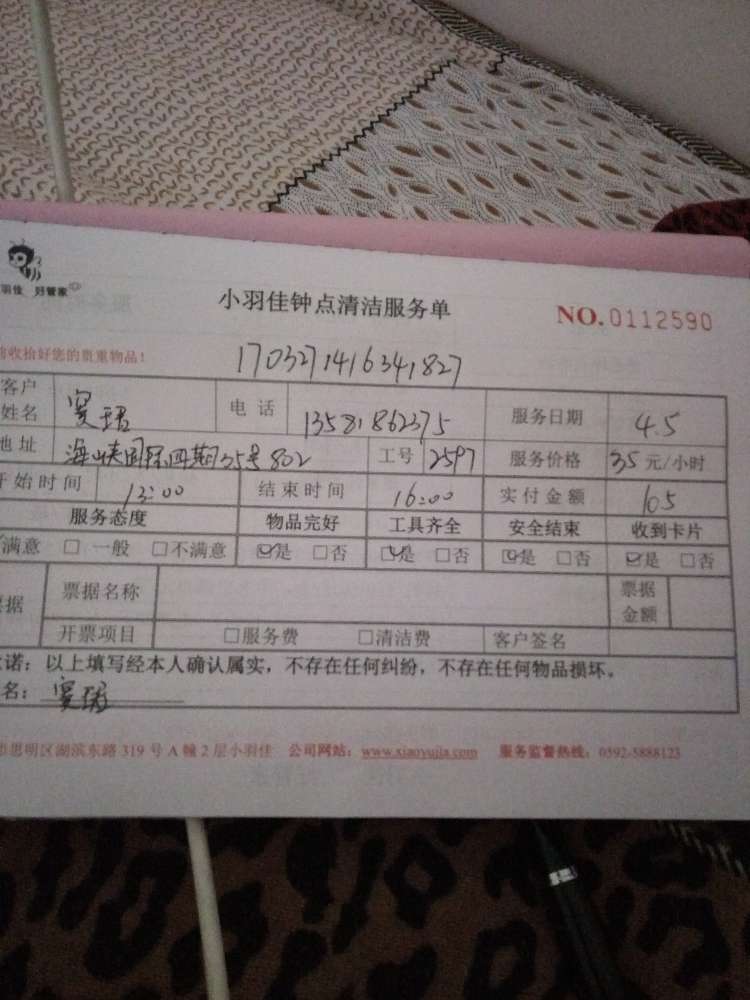 羽佳 好管家
小羽佳钟点清洁服务单
NO.0112590
前收拾好您的贵重物品！
1703271416341827
客户姓名 窦珺 电话 13581862375 服务日期 4.5
地址 海峡国际四期35号802 工号 2597 服务价格 35元/小时
开始时间 13:00 结束时间 16:00 实付金额 105
服务态度 物品完好 工具齐全 安全结束 收到卡片
满意 □ 一般 □不满意 ☑是 □否 ☑是 □否 ☑是 □否 ☑是 □否
票据 票据名称 票据金额
开票项目 □服务费 □清洁费 客户签名
诺：以上填写经本人确认属实，不存在任何纠纷，不存在任何物品损坏。
名：窦珺
市思明区湖滨东路319号A幢2层小羽佳 公司网站：www.xiaoyujia.com 服务监督热线：0592-5888123